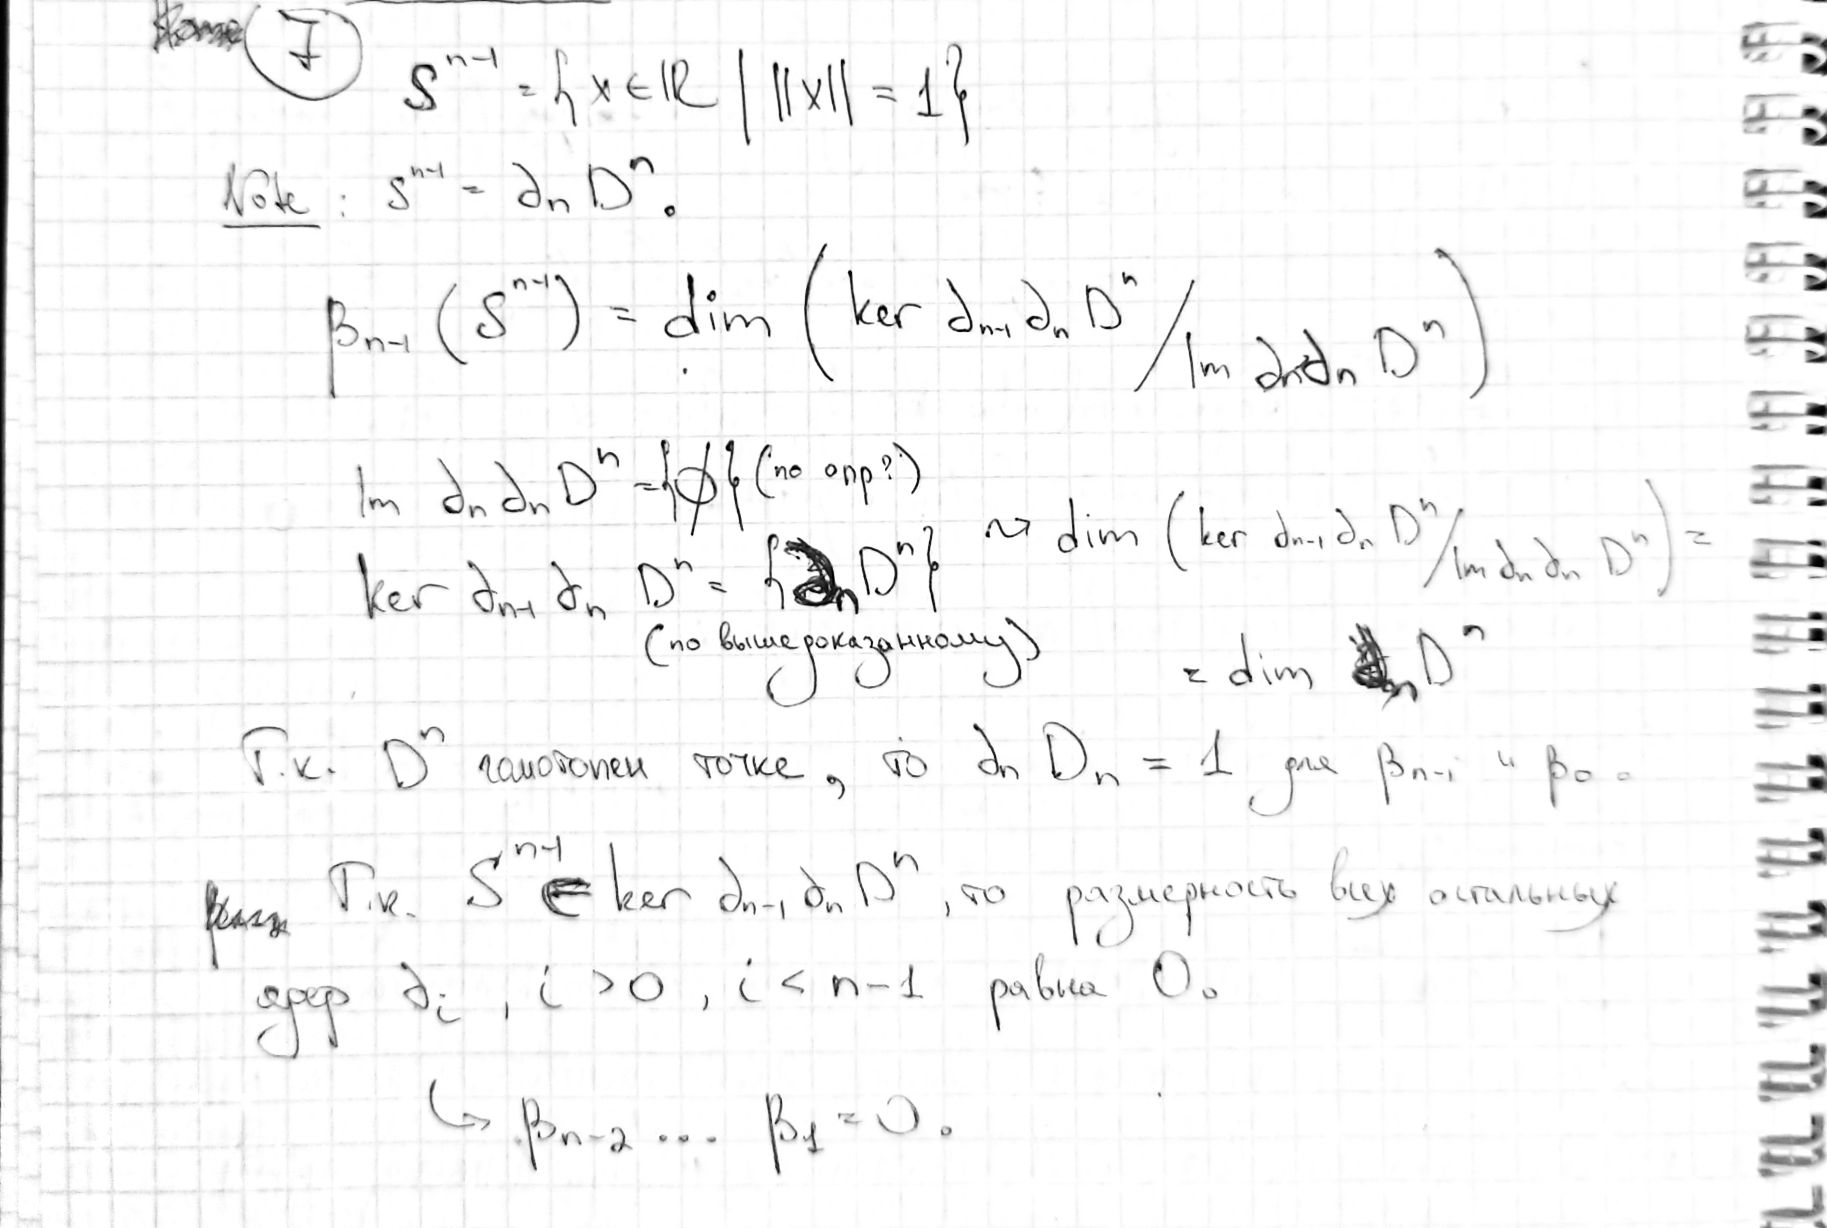 7
S^{n-1} = { x ∈ ℝ | ||x|| = 1 }
Note: S^{n-1} = ∂_n D^n.
β_{n-1} (S^{n-1}) = dim ( ker ∂_{n-1} ∂_n D^n / Im ∂_n ∂_n D^n )
Im ∂_n ∂_n D^n = {∅} (по опр?)
ker ∂_{n-1} ∂_n D^n = {∂_n D^n}
(по вышедоказанному)
⤳ dim ( ker ∂_{n-1} ∂_n D^n / Im ∂_n ∂_n D^n ) =
= dim ∂_n D^n
Т.к. D^n гомотопен точке, то ∂_n D_n = 1 для β_{n-1} и β_0.
Т.к. S^{n-1} ∈ ker ∂_{n-1} ∂_n D^n, то размерность всех остальных
ядер ∂_i, i > 0, i < n-1 равна 0.
↪ β_{n-2} ... β_1 = 0.